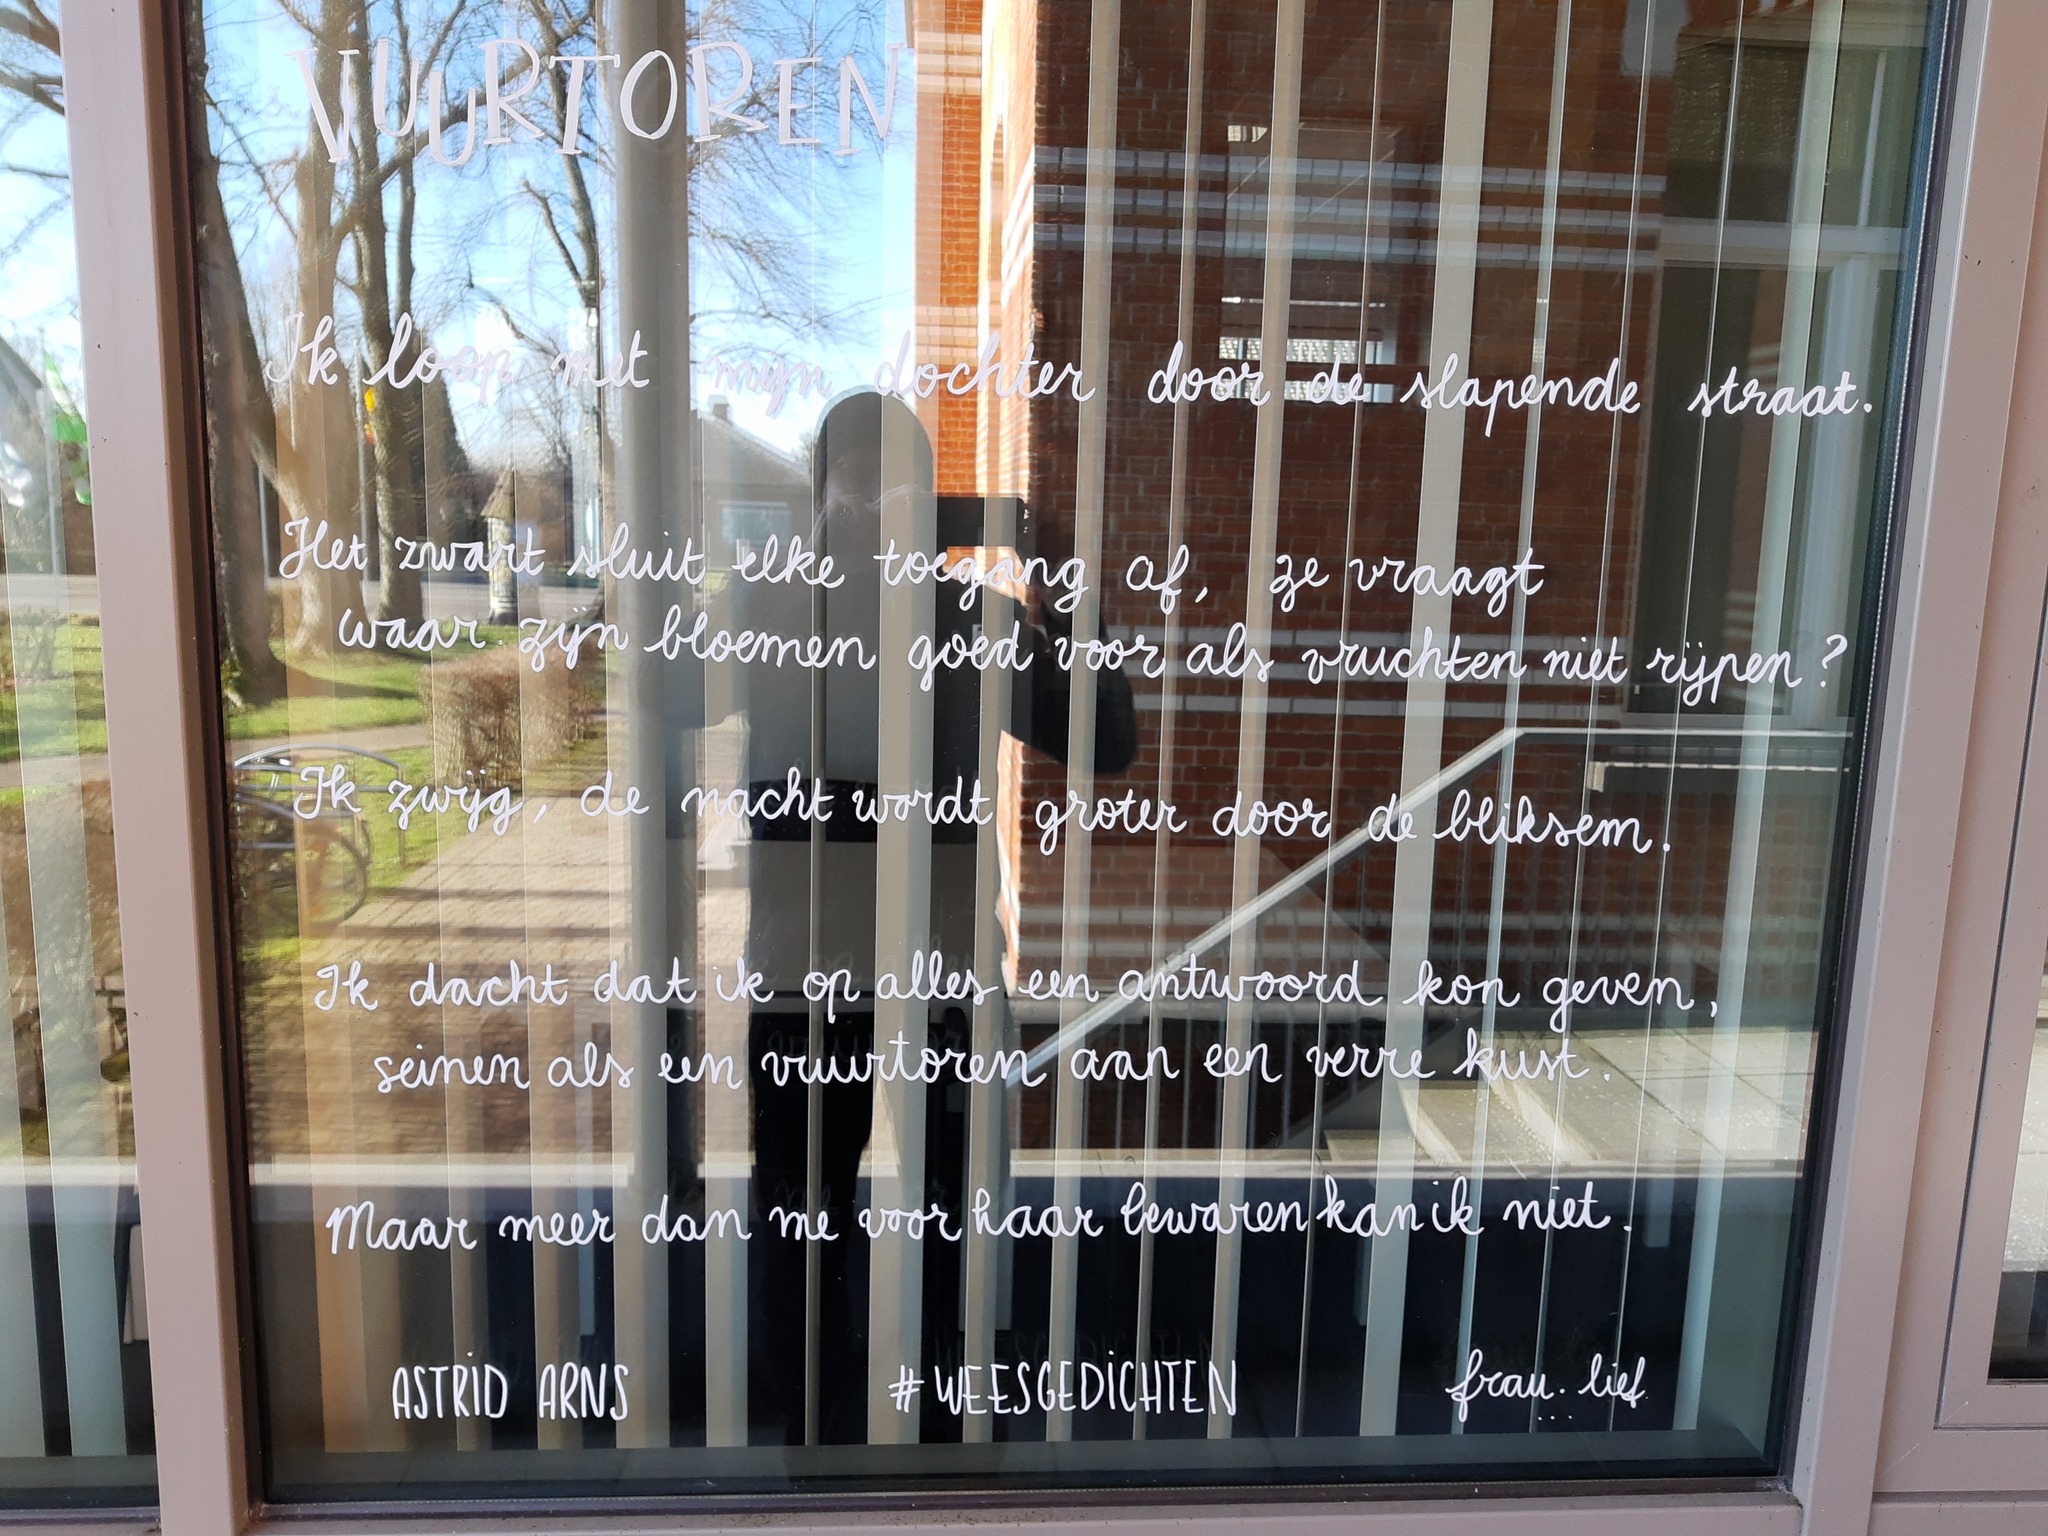 VUURTOREN
Ik loop met mijn dochter door de slapende straat.
Het zwart sluit elke toegang af, ze vraagt
waar zijn bloemen goed voor als vruchten niet rijpen?
Ik zwijg, de nacht wordt groter door de bliksem.
Ik dacht dat ik op alles een antwoord kon geven,
seinen als een vuurtoren aan een verre kust.
Maar meer dan me voor haar bewaren kan ik niet.
ASTRID ARNS #WEESGEDICHTEN frau. lief